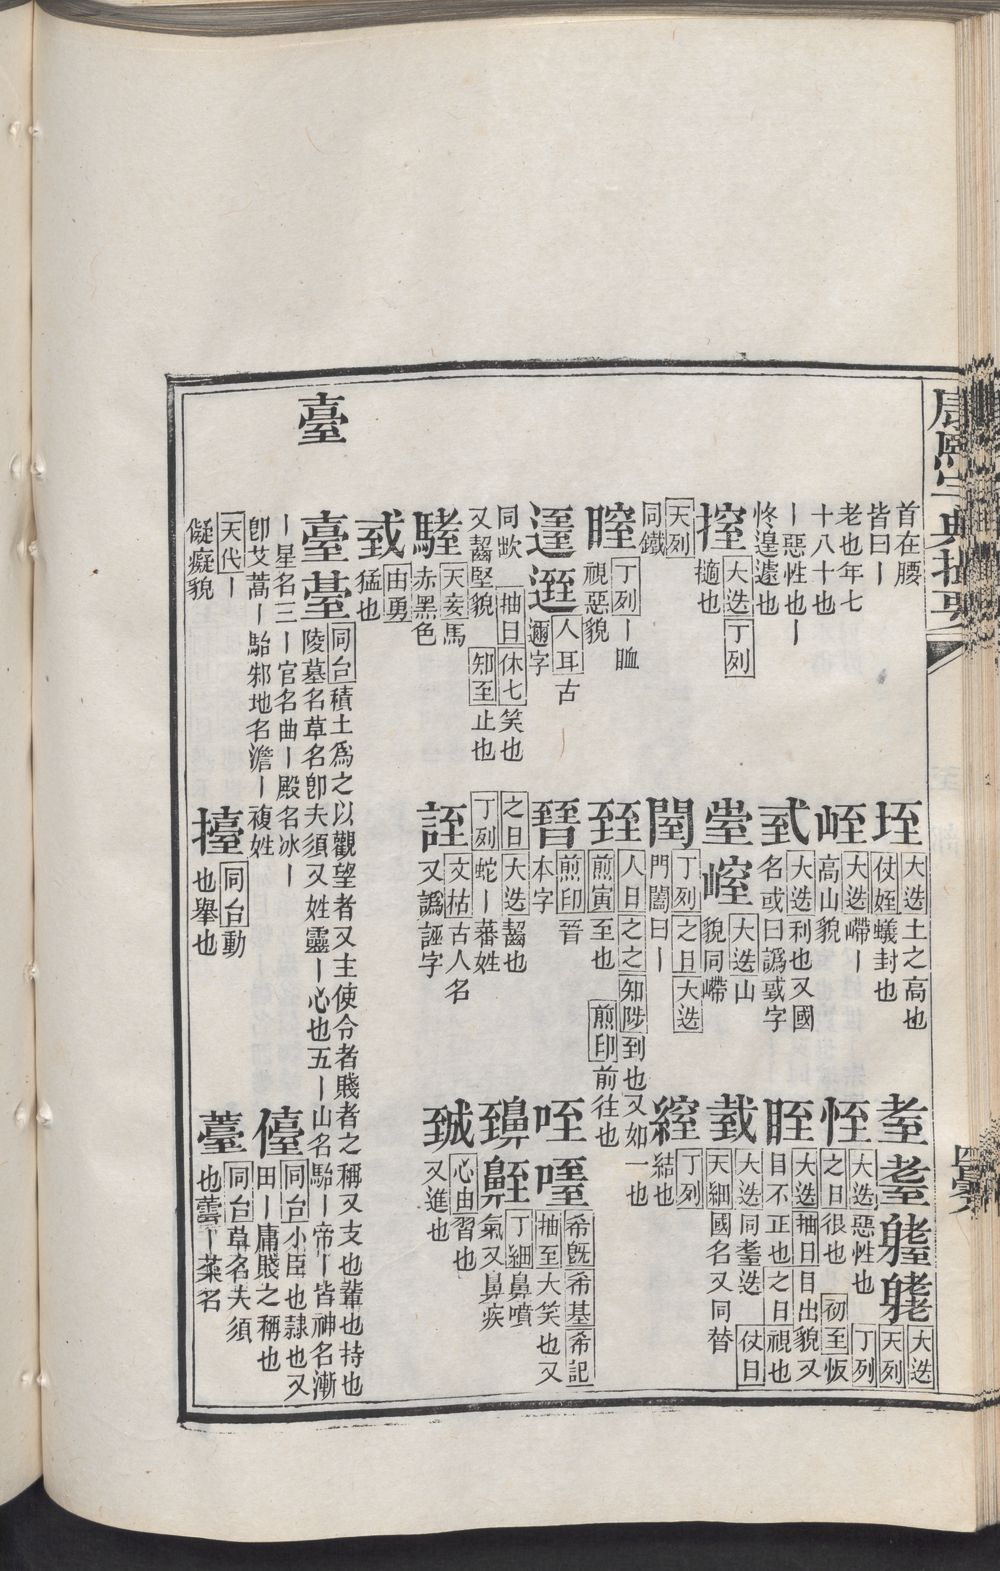 康熙字典撮要
首在腰
皆曰丨
垤
大迭土之高也
㑀蟻封也
耋
大迭
天列
老也年七
十八十也
峌
大迭㠜丨
高山貌
恎
大迭惡性也
丁列
之日很也
初至忿
丨惡性也丨
佟遑遽也
大迭利也又國
名或曰譌戜字
眰
大迭抽日目出貌又
目不正也之日視也
㨖
大迭丁列
擿也
大迭山
貌同㠜
臷
大迭同耋迭
仗日
天細國名又同替
天列
同鐵
閨
丁列之日大迭
門闔曰丨
絰
丁列
結也
丁列丨䀏
視惡貌
臸
人日之之知陟到也又如一也
煎寅至也
煎印前往也
人耳古
邇字
煎印晉
本字
咥
希旣希基希記
抽至大笑也又
抽日休七笑也
同㰞
之日大迭齧也
丁細鼻噴
氣又鼻疾
又齧堅貌
知至止也
丁列蛇丨蕃姓
天妾馬
赤黑色
誈
文枯古人名
又譌誣字
心由習也
又進也
由勇
猛也
臺
臺
同台積土爲之以觀望者又主使令者賤者之稱又支也輩也持也
陵墓名草名卽夫須又姓靈丨心也五丨山名駘丨帝丨皆神名漸
丨星名三丨官名曲丨殿名冰丨
卽艾蒿丨駘邾地名澹丨複姓
儓
同台小臣也隸也又
田丨庸賤之稱也
天代丨
儗癡貌
擡
同台動
也舉也
薹
同台草名夫須
也蕓丨菜名